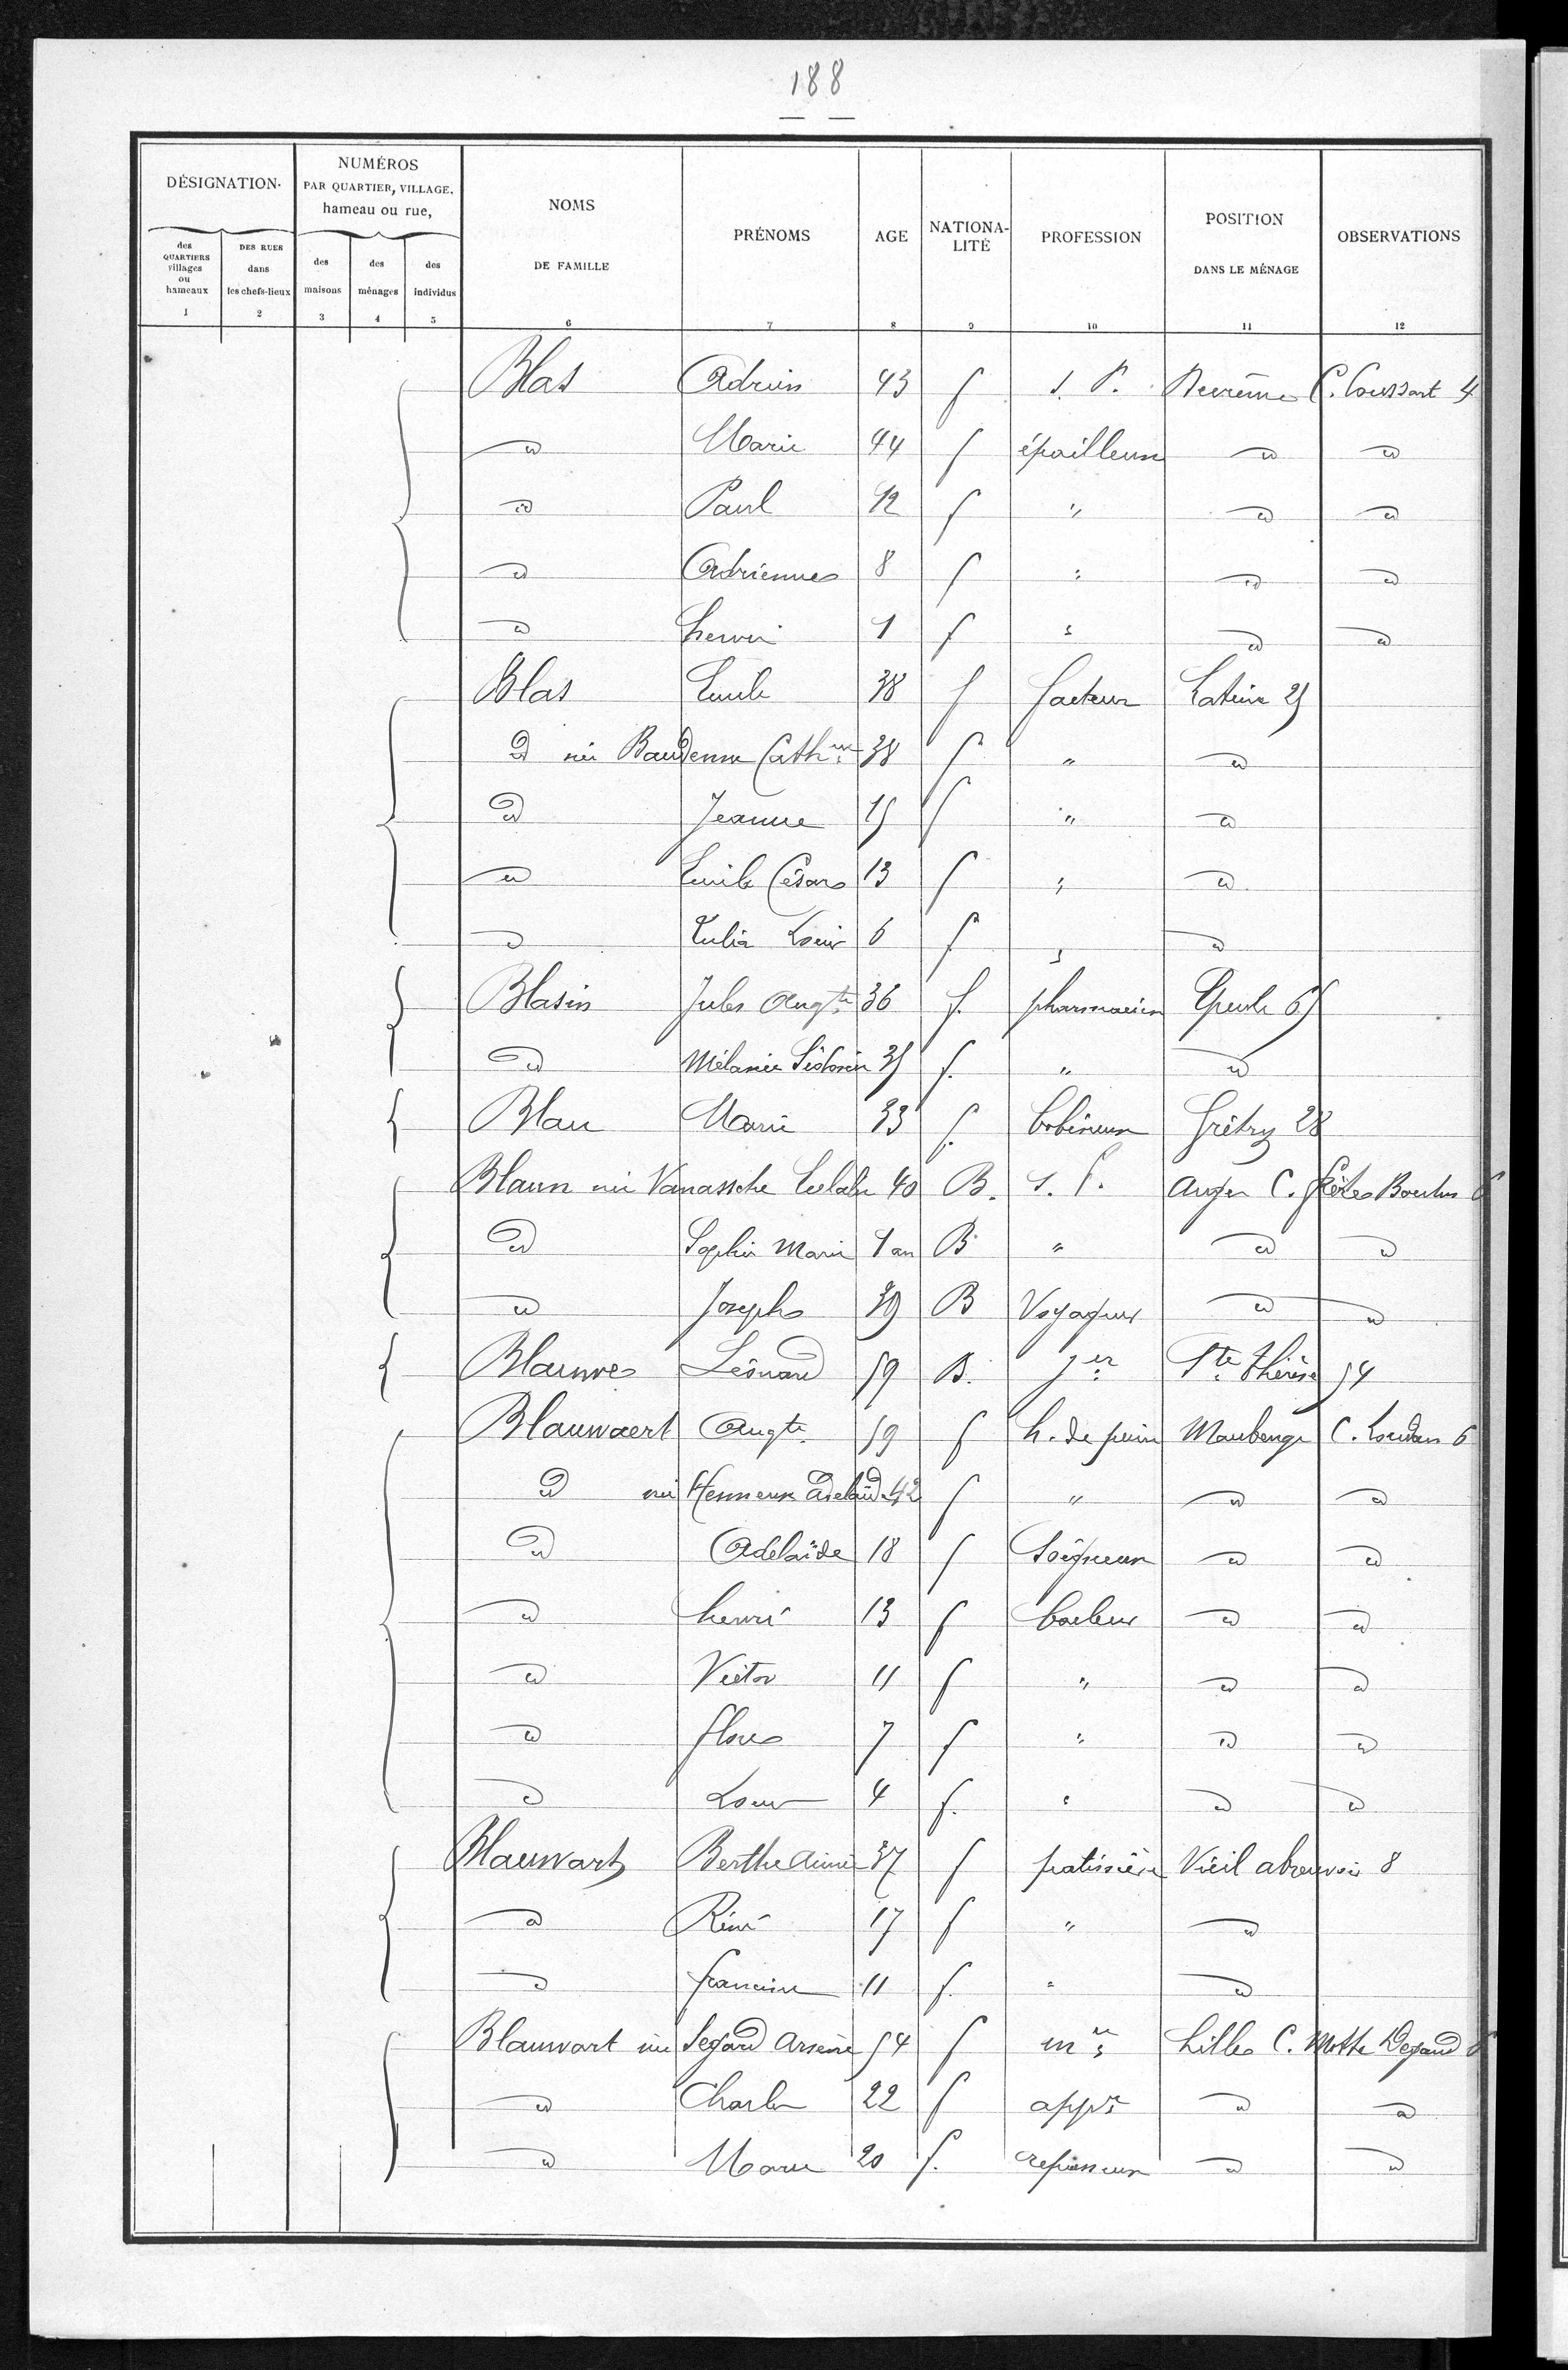 188
DÉSIGNATION. NUMÉROS PAR QUARTIER, VILLAGE, hameau ou rue, NOMS DE FAMILLE PRÉNOMS AGE NATIONALITÉ PROFESSION POSITION DANS LE MÉNAGE OBSERVATIONS
des QUARTIERS villages ou hameaux DES RUES dans les chefs-lieux des maisons des ménages des individus
1 2 3 4 5 6 7 8 9 10 11 12
Blas Adrien 43 f s. P. C. Coussart 4
d Marie 44 f épailleuse d d
d Paul 12 f " d d
d Adrienne 8 f " d d
d henri 1 f " d d
Blas Emile 38 f facteur 25
d née Baudenne Cath.ne 38 f " d
d Jeanne 15 f " d
d Emile César 13 f " d
d Julia Louise 6 f " d
Blasin Jules Augte 36 f. pharmacien Epeule 65
d Mélanie 35 f. " d
Blau Marie 33 f. bobineuse Grétry 28
Blaun née Vanassche 40 B. s. P. C. frères 6
d Sophie Marie 1 an B " d d
d Joseph 39 B Voyageur d d
Blauwe Léonard 59 B. jer Ste Thérèse 54
Blauwaert Augte 59 f h. de peine Maubeuge C. 6
d née Adelaïde 42 f " d d
d Adelaïde 18 f Soigneuse d d
d henri 13 f d d
d Victor 11 f " d d
d flore 7 f " d d
d Louis 4 f. " d d
Blauwart Berthe Aimée 37 f patissière Vieil abreuvoir 8
d Réné 17 f " d
d francine 11 f. " d
Blauwart née Segard Arsène 54 f mre Lille C. Motte Degand 6
d Charles 22 f appr d d
d Marie 20 f. repasseuse d d